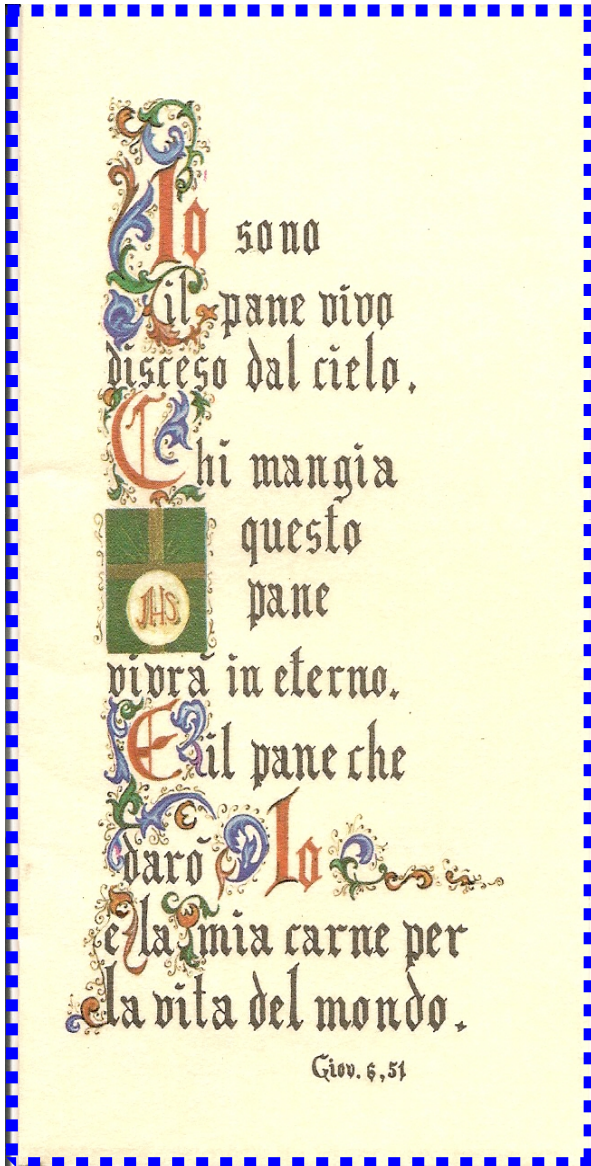 Io sono
il pane vivo
disceso dal cielo.
Chi mangia
questo
JHS
pane
vivrà in eterno.
E il pane che
darò Io
e la mia carne per
la vita del mondo.
Giov. 6,51